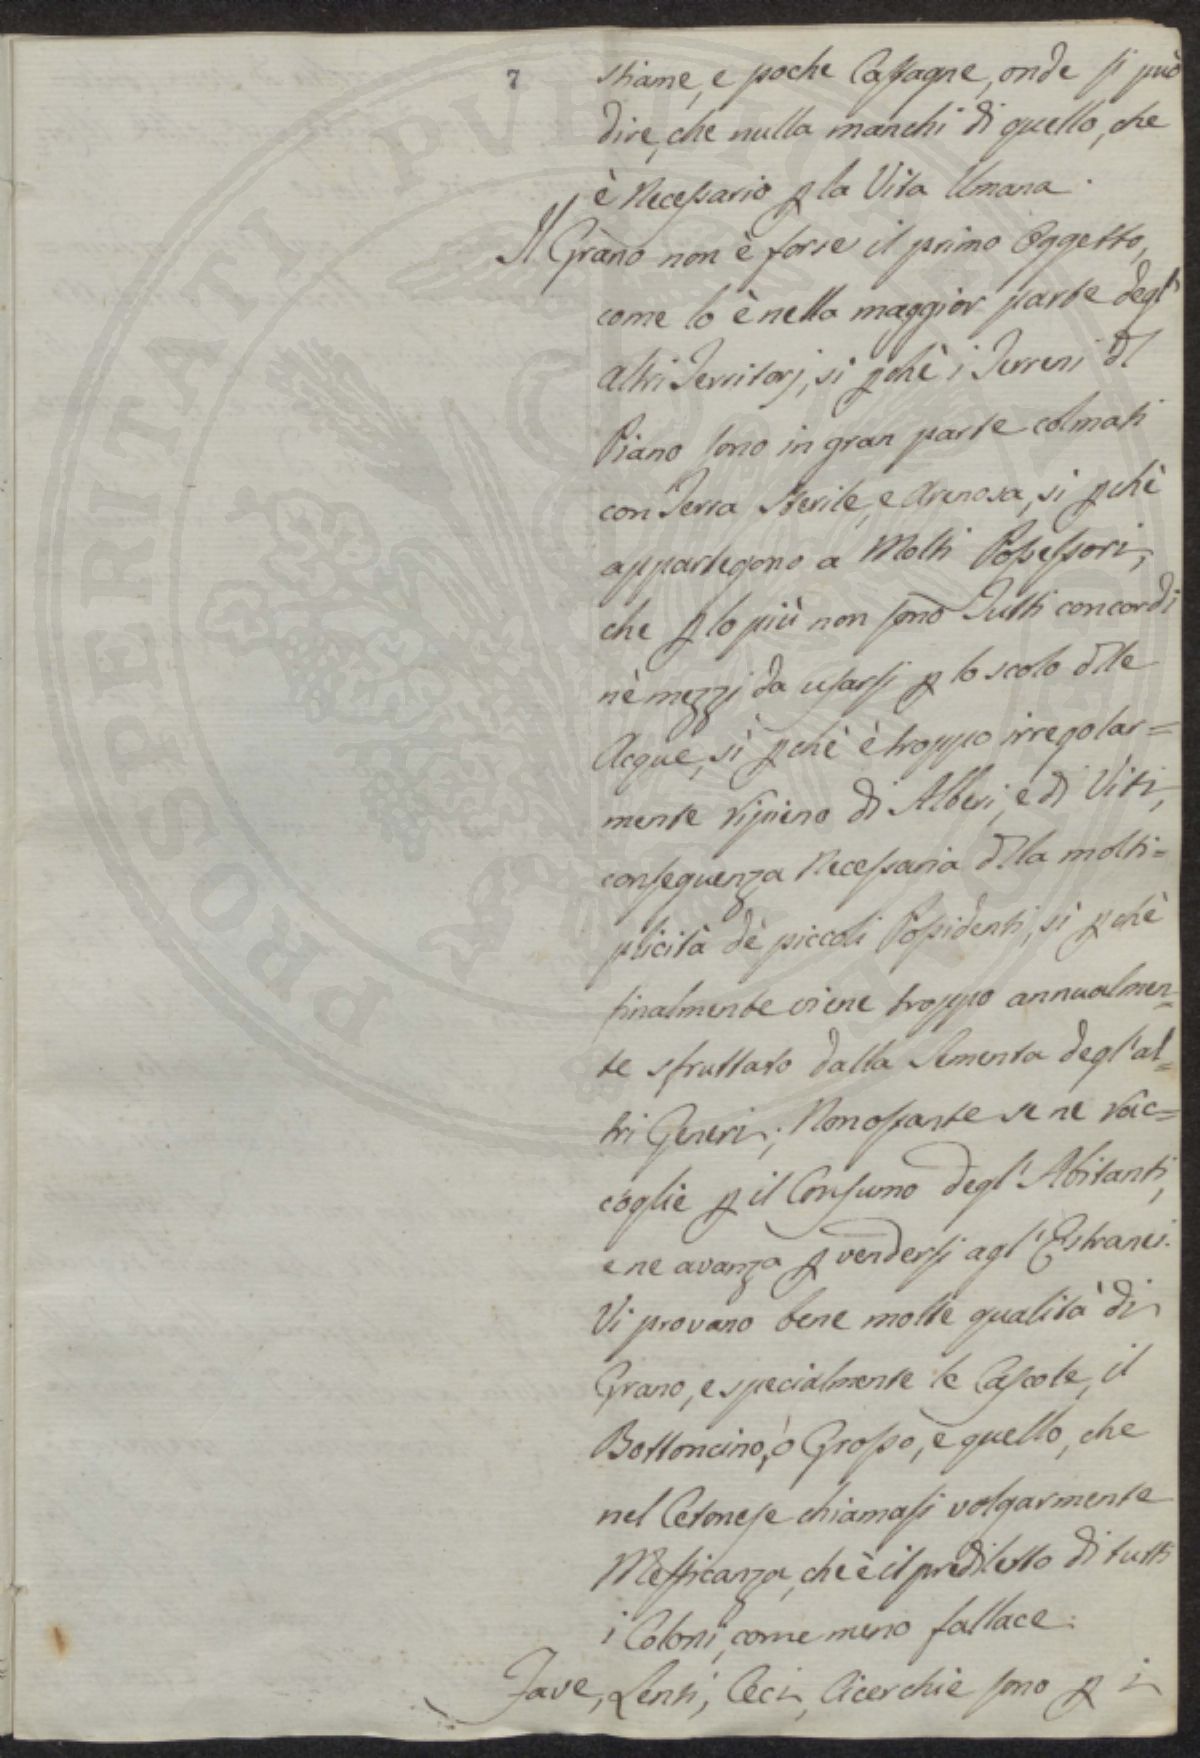 7
stiame, e poche Castagne, onde si può
dire, che nulla manchi di quello, che
è Necessario p la Vita Umana.
Il Grano non è forse il primo Oggetto,
come lo è nella maggior parte degl'
altri Territorj, sì pchè i Terreni dl
Piano sono in gran parte colmati
con Terra Sterile, e Arenosa, sì pchè
appartegono a Molti Possessori,
che p lo più non sono Tutti concordi
nè mezzi da usarsi p lo scolo dlle
Acque, sì pchè è troppo irregolar=
mente ripieno di Alberi, e di Viti,
conseguenza Necessaria dlla molti=
plicità dè piccoli Possidenti, sì pchè
finalmente viene troppo annualmen=
te sfruttato dalla Sementa degl'al=
tri Generi; Nonostante se ne rac=
coglie p il Consumo degl' Abitanti,
e ne avanza p vendersi agl' Estranei.
Vi provano bene molte qualità di
Grano, e specialmente le Cascole, il
Bottoncino, ò Grosso, e quello, che
nel Cetonese chiamasi volgarmente
Mesticanza, che è il prediletto di tutti
i Coloni, come meno fallace.
Fave, Lenti, Ceci, Cicerchie sono p i
PROSPERITATI PVBLICAE